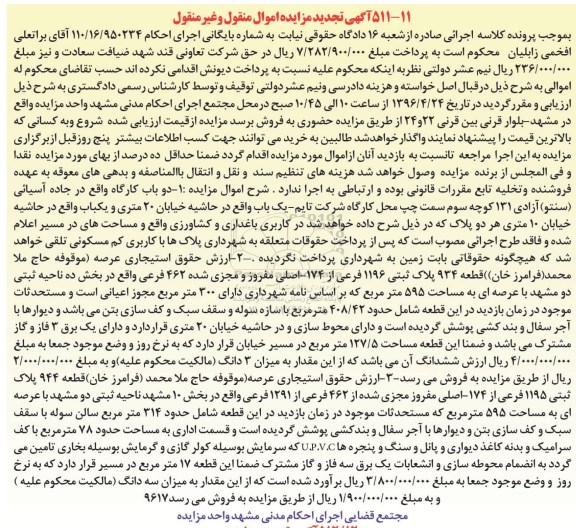 ۱۱-۵۱۱آگهی تجدید مزایده اموال منقول وغیر منقول
بموجب پرونده کلاسه اجرائی صادره ازشعبه ۱۶ دادگاه حقوقی نیابت به شماره بایگانی اجرای احکام ۱۱۰/۱۶/۹۵۰۲۳۴ آقای براتعلی
افخمی زابلیان محکوم است به پرداخت مبلغ ۷/۲۸۲/۹۰۰/۰۰۰ ریال در حق شرکت تعاونی قند شهد ضیافت سعادت و نیز مبلغ
۲۳۶/۰۰۰/۰۰۰ ریال نیم عشر دولتی نظر به اینکه محکوم علیه نسبت به پرداخت دیونش اقدامی نکرده اند حسب تقاضای محکوم له
اموالی به شرح ذیل در قبال اصل خواسته و هزینه دادرسی ونیم عشر دولتی توقیف و توسط کارشناس رسمی دادگستری به شرح ذیل
ارزیابی و مقرر گردید در تاریخ ۱۳۹۶/۴/۲۴ از ساعت ۱۰ الی ۱۰/۴۵ صبح در محل مجتمع اجرای احکام مدنی مشهد واحد مزایده واقع
در مشهد-بلوار قرنی بین قرنی ۲۲و۲۴ از طریق مزایده حضوری به فروش برسد مزایده ازقیمت ارزیابی شده شروع وبه کسانی که
بالاترین قیمت را پیشنهاد نمایند واگذار خواهد شد طالبین به خرید می توانند جهت کسب اطلاعات بیشتر پنج روزقبل ازبرگزاری
مزایده به این اجرا مراجعه تانسبت به بازدید آنان ازاموال مورد مزایده اقدام گردد ضمنا حداقل ده درصد از بهای مورد مزایده نقدا
و فی المجلس از برنده مزایده وصول خواهد شد هزینه های تنظیم سند و نقل و انتقال باالمناصفه و بدهی های معوقه به عهده
فروشنده وتخلیه تابع مقررات قانونی بوده و ارتباطی به اجرا ندارد . شرح اموال مزایده :۱-دو باب کارگاه واقع در جاده آسیائی
(سنتو)آزادی ۱۳۱ کوچه سوم سمت چپ محل کارگاه شرکت تایم-یک باب واقع در حاشیه خیابان ۲۰ متری و یکباب واقع در حاشیه
خیابان ۱۰ متری هر دو پلاک که در ذیل شرح داده خواهد شد در کاربری باغداری و کشاورزی واقع و مساحت های در مسیر اعلام
شده و فاقد طرح اجرائی مصوب است که پس از پرداخت حقوقات متعلقه به شهرداری پلاک ها با کاربری کم مسکونی تلقی خواهد
شد که هیچگونه حقوقاتی بابت زمین به شهرداری پرداخت نگردیده .-۲-ارزش حقوق استیجاری عرصه (موقوفه حاج ملا
محمد(فرامرز خان))قطعه ۹۳۴ پلاک ثبتی ۱۱۹۶ فرعی از ۱۷۴-اصلی مفروز و مجزی شده ۴۶۲ فرعی واقع در بخش ده ناحیه ثبتی
دو مشهد با عرصه ای به مساحت ۵۹۵ متر مربع که بر اساس نامه شهرداری دارای ۳۰۰ متر مربع مجوز اعیانی است و مستحدثات
موجود در زمان بازدید در این قطعه شامل حدود ۴۰۸/۴۲ مترمربع با سازه سوله و سقف سبک و کف سازی بتن می باشد و دیوارها با
آجر سفال و بند کشی پوشش گردیده است و دارای محوط سازی و در حاشیه خیابان ۲۰ متری قرار دارد و دارای یک برق ۳ فاز و گاز
مشترک می باشد و ضمنا این قطعه مساحت ۱۲۷/۵ متر مربع در مسیر خیابان قرار دارد که به نرخ روز و وضع موجود جمعا به مبلغ
۴/۰۰۰/۰۰۰/۰۰۰ ریال ارزش ششدانگ آن می باشد که از این مقدار به میزان ۳ دانگ (مالکیت محکوم علیه)و به مبلغ ۲/۰۰۰/۰۰۰/۰۰۰
ریال از طریق مزایده به فروش می رسد-۳-ارزش حقوق استیجاری عرصه(موقوفه حاج ملا محمد (فرامرز خان)قطعه ۹۴۴ پلاک
ثبتی ۱۱۹۵ فرعی از ۱۷۴-اصلی مفروز مجزی شده از ۴۶۲ فرعی از ۱۲۹۱ فرعی واقع در بخش ۱۰ مشهد ناحیه ثبتی دو مشهد با عرصه
ای به مساحت ۵۹۵ مترمربع که مستحدثات موجود در زمان بازدید در این قطعه شامل حدود ۳۱۴ متر مربع سالن سوله با سقف
سبک و کف سازی بتن و دیوارها با آجر سفال و بندکشی پوشش گردیده است و قسمت اداری به مساحت حدود ۷۸ مترمربع با کف
سرامیک و بدنه کاغذ دیواری و پانل و سنگ و پنجره ها U.P.V.C که سرمایش بوسیله کولر گازی و گرمایش بوسیله بخاری تامین می
گردد به انضمام محوطه سازی و انشعابات یک برق سه فاز و گاز مشترک ضمنا این قطعه ۱۷ متر مربع در مسیر قرار دارد که به نرخ
روز و وضع موجود جمعا به مبلغ ۳/۸۰۰/۰۰۰/۰۰۰ ریال بر آورد شده است که از این مقدار به میزان سه دانگ (مالکیت محکوم علیه )
و به مبلغ ۱/۹۰۰/۰۰۰/۰۰۰ ریال از طریق مزایده به فروش می رسد۹۶۱۷
مجتمع قضایی اجرای احکام مدنی مشهد واحد مزایده